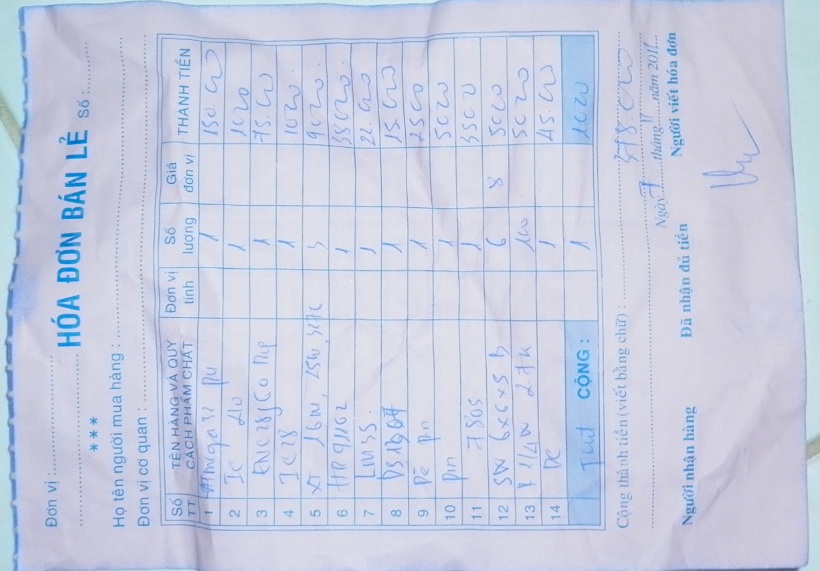 Đơn vị :
HÓA ĐƠN BÁN LẺ
*** Số :
Họ tên người mua hàng :
Đơn vị cơ quan :
Số TT TÊN HÀNG VÀ QUY CÁCH PHẨM CHẤT Đơn vị tính Số lượng Giá đơn vị THÀNH TIỀN
1 Atmega32 1 150.000
2 IC 1 1000
3 1 75.000
4 IC 18 1 1000
5 XT 16M, 25M, 3 9000
6 HR911 1 38000
7 LM35 1 22.000
8 DS1307 1 15.000
9 Đế pin 1 2500
10 pin 1 5000
11 7805 1 3500
12 SW 6x6x5 6 8 5000
13 R 1/4W 2.7K 100 5000
14 DC 1 45.000
CỘNG : 1 1000
Cộng thành tiền (viết bằng chữ) : 378.000
Ngày 7 tháng 11 năm 201
Người nhận hàng Đã nhận đủ tiền Người viết hóa đơn